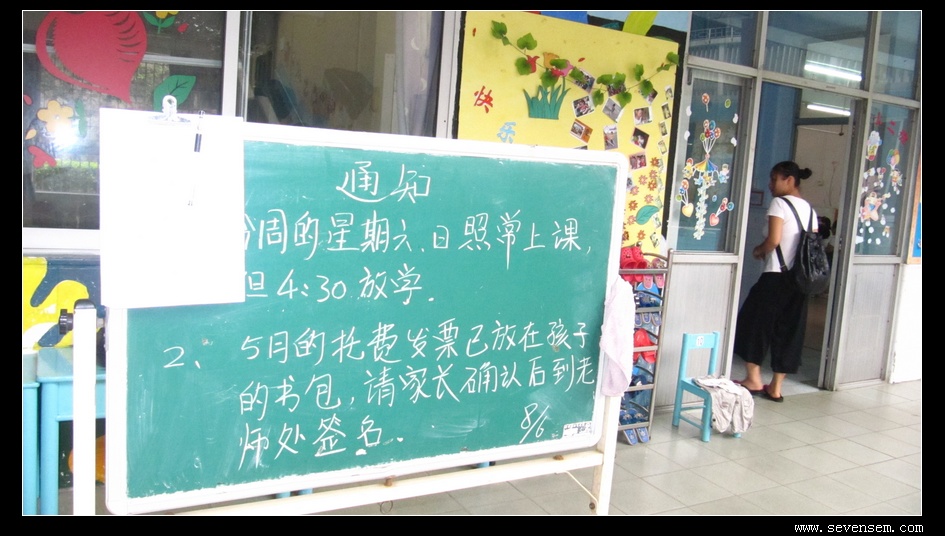 快
乐
通知
周的星期六、日照常上课,
但4:30放学.
2、5月的托费发票已放在孩子
的书包,请家长确认后到老
师处签名.
8/6
www.sevensem.com